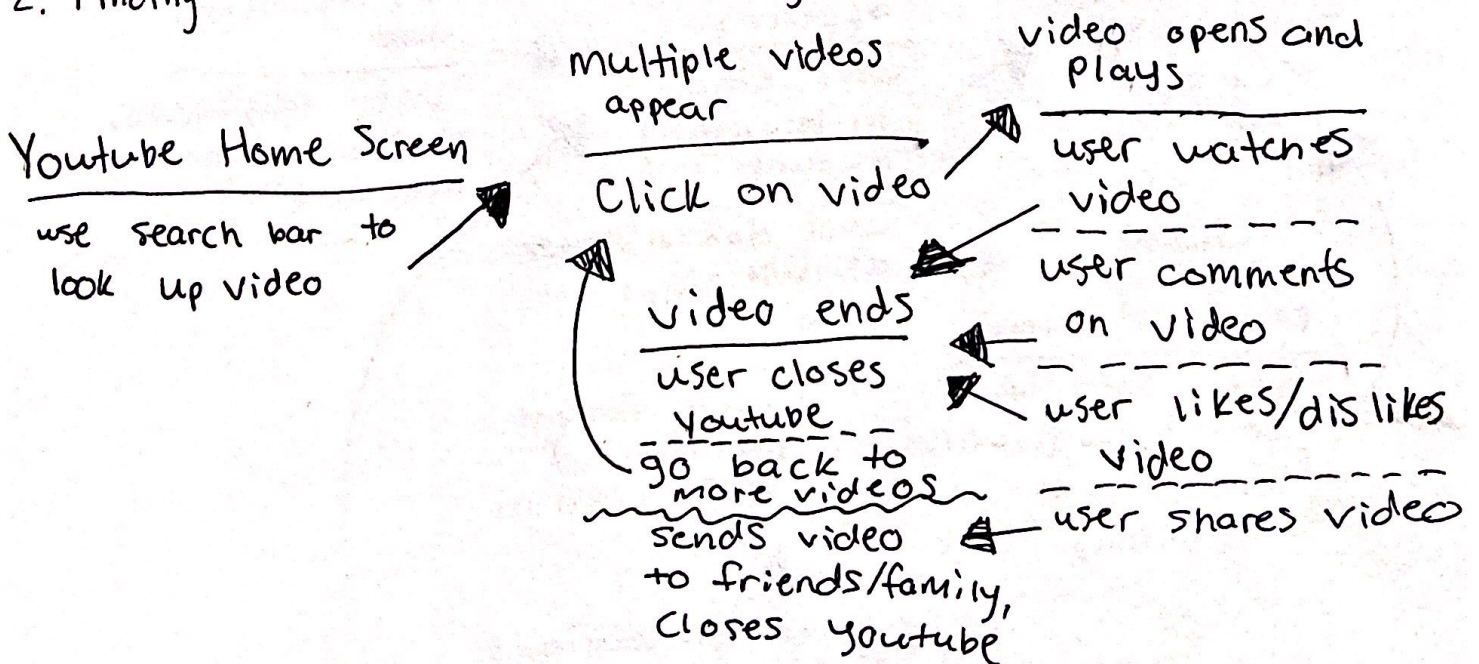 2. Finding
Youtube Home Screen
use search bar to
look up video
multiple videos
appear
Click on video
video opens and
plays
user watches
video
user comments
on video
user likes/dislikes
video
user shares video
video ends
user closes
youtube
go back to
more videos
sends video
to friends/family,
closes youtube